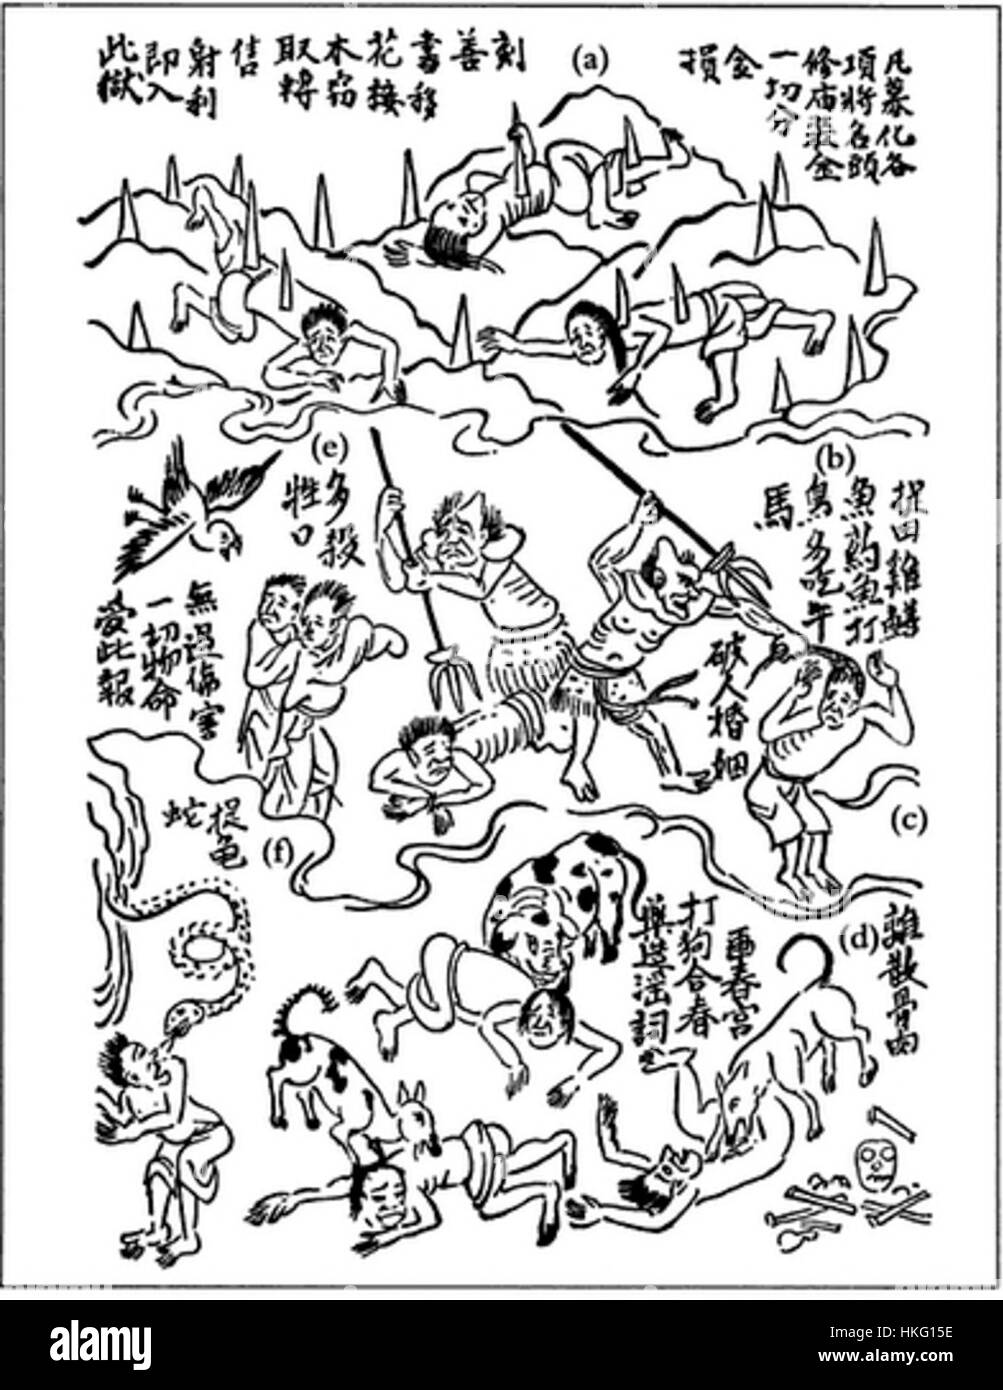 凡募化各
項將名頭
修庙裝金
一切分
金
損
(a)
刻
善
書移
花接
木窃
取轉
售
射利
即入
此獄
(b)
捉田雞鱔
魚釣魚打
鳥多吃牛
馬
(e)
多殺
牲口
無過傷害
一切物命
受此報
破人婚姻
(c)
(d)
離散骨肉
画春宮
打狗合春
藥造淫詞
(f)
捉龟
蛇
alamy
Image ID: HKG15E
www.alamy.com